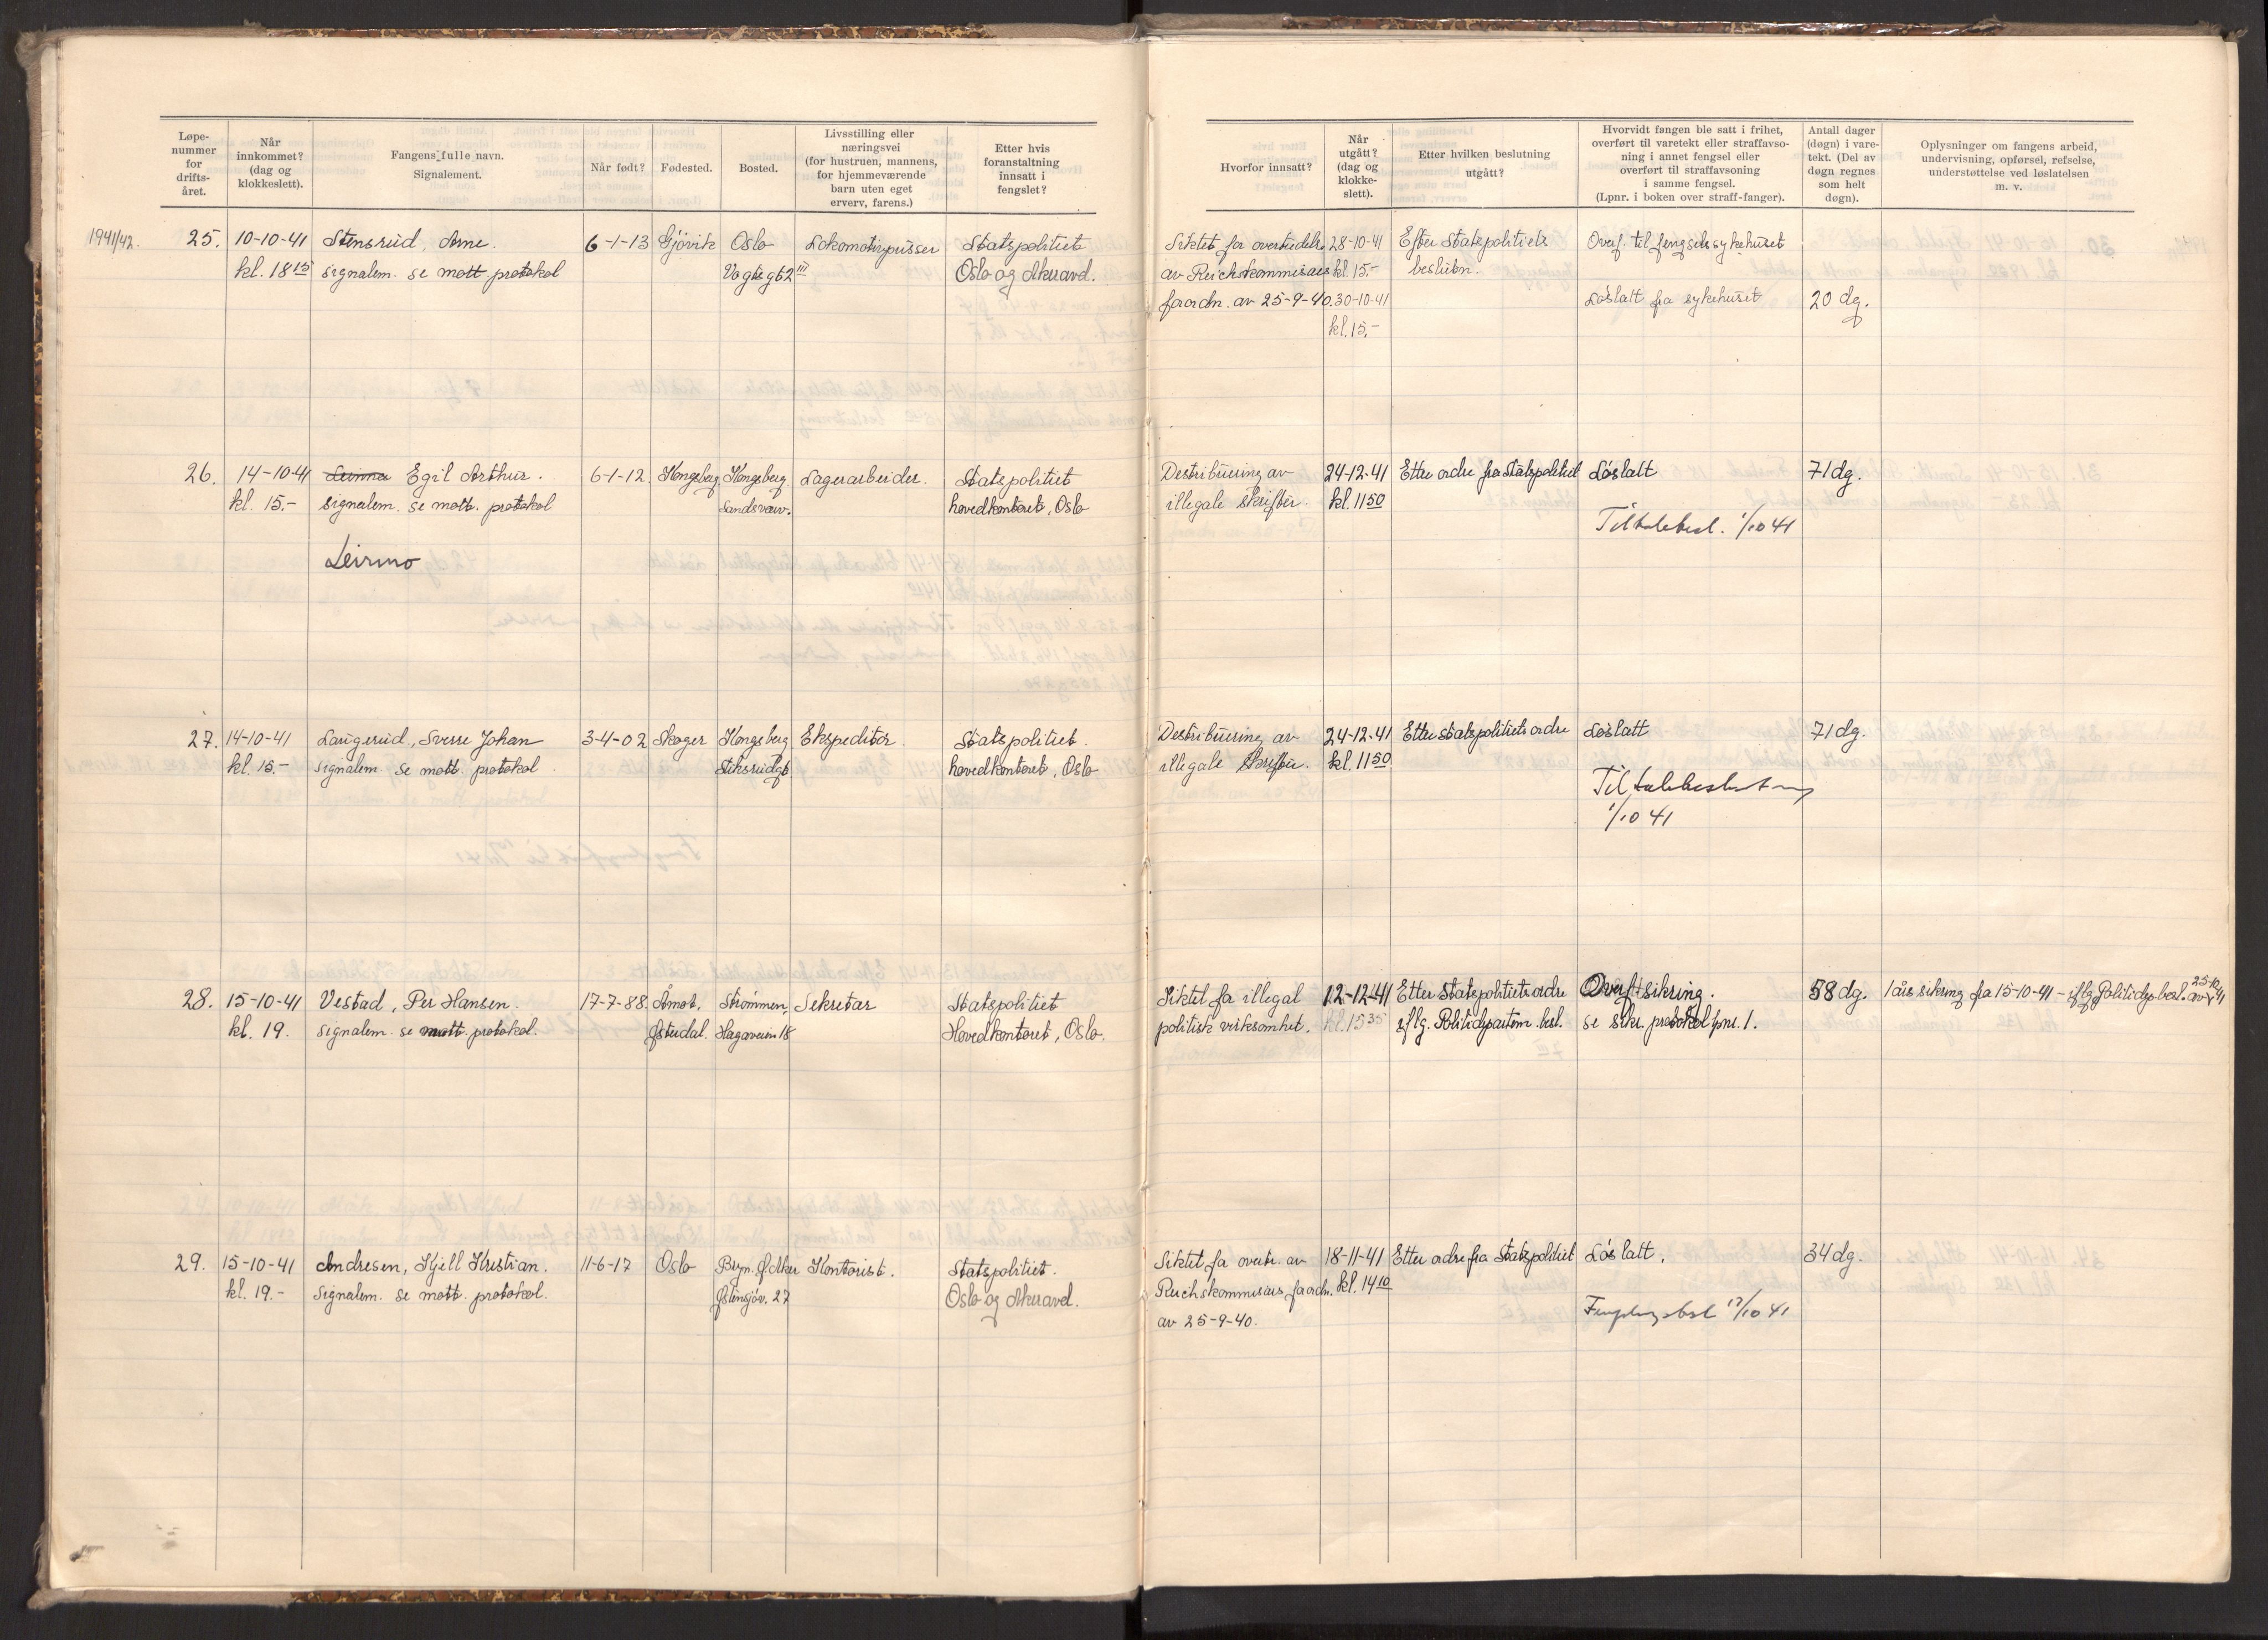 Løpe-
nummer
for
drifts-
året.
Når
innkommet?
(dag og
klokkeslett).
Fangens fulle navn.
Signalement.
Når født?
Fødested.
Bosted.
Livsstilling eller
næringsvei
(for hustruen, mannens,
for hjemmeværende
barn uten eget
erverv, farens.)
Etter hvis
foranstaltning
innsatt i
fengslet?
Hvorfor innsatt?
Når
utgått?
(dag og
klokke-
slett).
Etter hvilken beslutning
utgått?
Hvorvidt fangen ble satt i frihet,
overført til varetekt eller straffavso-
ning i annet fengsel eller
overført til straffavsoning
i samme fengsel.
(Lpnr. i boken over straff-fanger).
Antall dager
(døgn) i vare-
tekt. (Del av
døgn regnes
som helt
døgn).
Oplysninger om fangens arbeid,
undervisning, opførsel, refselse,
understøttelse ved løslatelsen
m. v.
1941/42.
25.
10-10-41
kl. 18 15
Stensrud, Arne.
signalem. se mott. protokol
6-1-13
Gjövik
Oslo
Vogtsgt 62 III
Lokomotivpusser
Statspolitiet
Oslo og Akeravd.
Siktet for overtredelse
av Reichskommisærs
forordn. av 25-9-40.
28-10-41
kl. 15.-
30-10-41
kl. 15.-
Efter Statspolitiets
beslutn.
Overf. til fengselssykehuset
Löslatt fra sykehuset
20 dg.
26.
14-10-41
kl. 15.-
Egil Arthur.
signalem. se mott. protokol
Leirmo
6-1-12.
Kongsberg
Kongsberg
Sandsverv.
Lagerarbeider.
Statspolitiet
hovedkontoret, Oslo
Destribuering av
illegale skrifter.
24-12-41
kl. 11 50
Etter ordre fra Statspolitiet
Löslatt
Tiltalebesl. 1/10 41
71 dg.
27.
14-10-41
kl. 15.-
Laugerud, Sverre Johan
signalem. se mott. protokol
3-4-02
Skoger
Kongsberg
Ekspeditör
Statspolitiet.
hovedkontoret, Oslo
Destribuering av
illegale skrifter.
24-12-41
kl. 11 50
Etter statspolitiets ordre
Löslatt
Tiltalebeslutning
1/10 41
71 dg.
28.
15-10-41
kl. 19.
Vestad, Per Hansen.
signalem. se mott. protokol.
17-7-88.
Åmot.
Østerdal.
Strömmen,
Hagaveien 18
Sekretær
Statspolitiet
Hovedkontoret, Oslo.
Siktet for illegal
politisk virksomhet.
12-12-41
kl. 15 35
Etter Statspolitiets ordre
iflg. Politidepartem. besl.
Overf. t sikring.
se sikr. protokol lpnr. 1.
58 dg.
1 års sikring fra 15-10-41 - iflg. Politidep. besl. av 25-10-41
29.
15-10-41
kl. 19.-
Andresen, Kjell Kristian.
signalem. se mott. protokol.
11-6-17
Oslo
Bryn. Ø. Aker
Østensjöv. 27
Kontorist.
Statspolitiet.
Oslo og Akeravd.
Siktet for overtr. av
Reichskommisærs forordn.
av 25-9-40.
18-11-41
kl. 14 10
Etter ordre fra Statspolitiet
Löslatt.
Fengslingsbesl 17/10 41
34 dg.